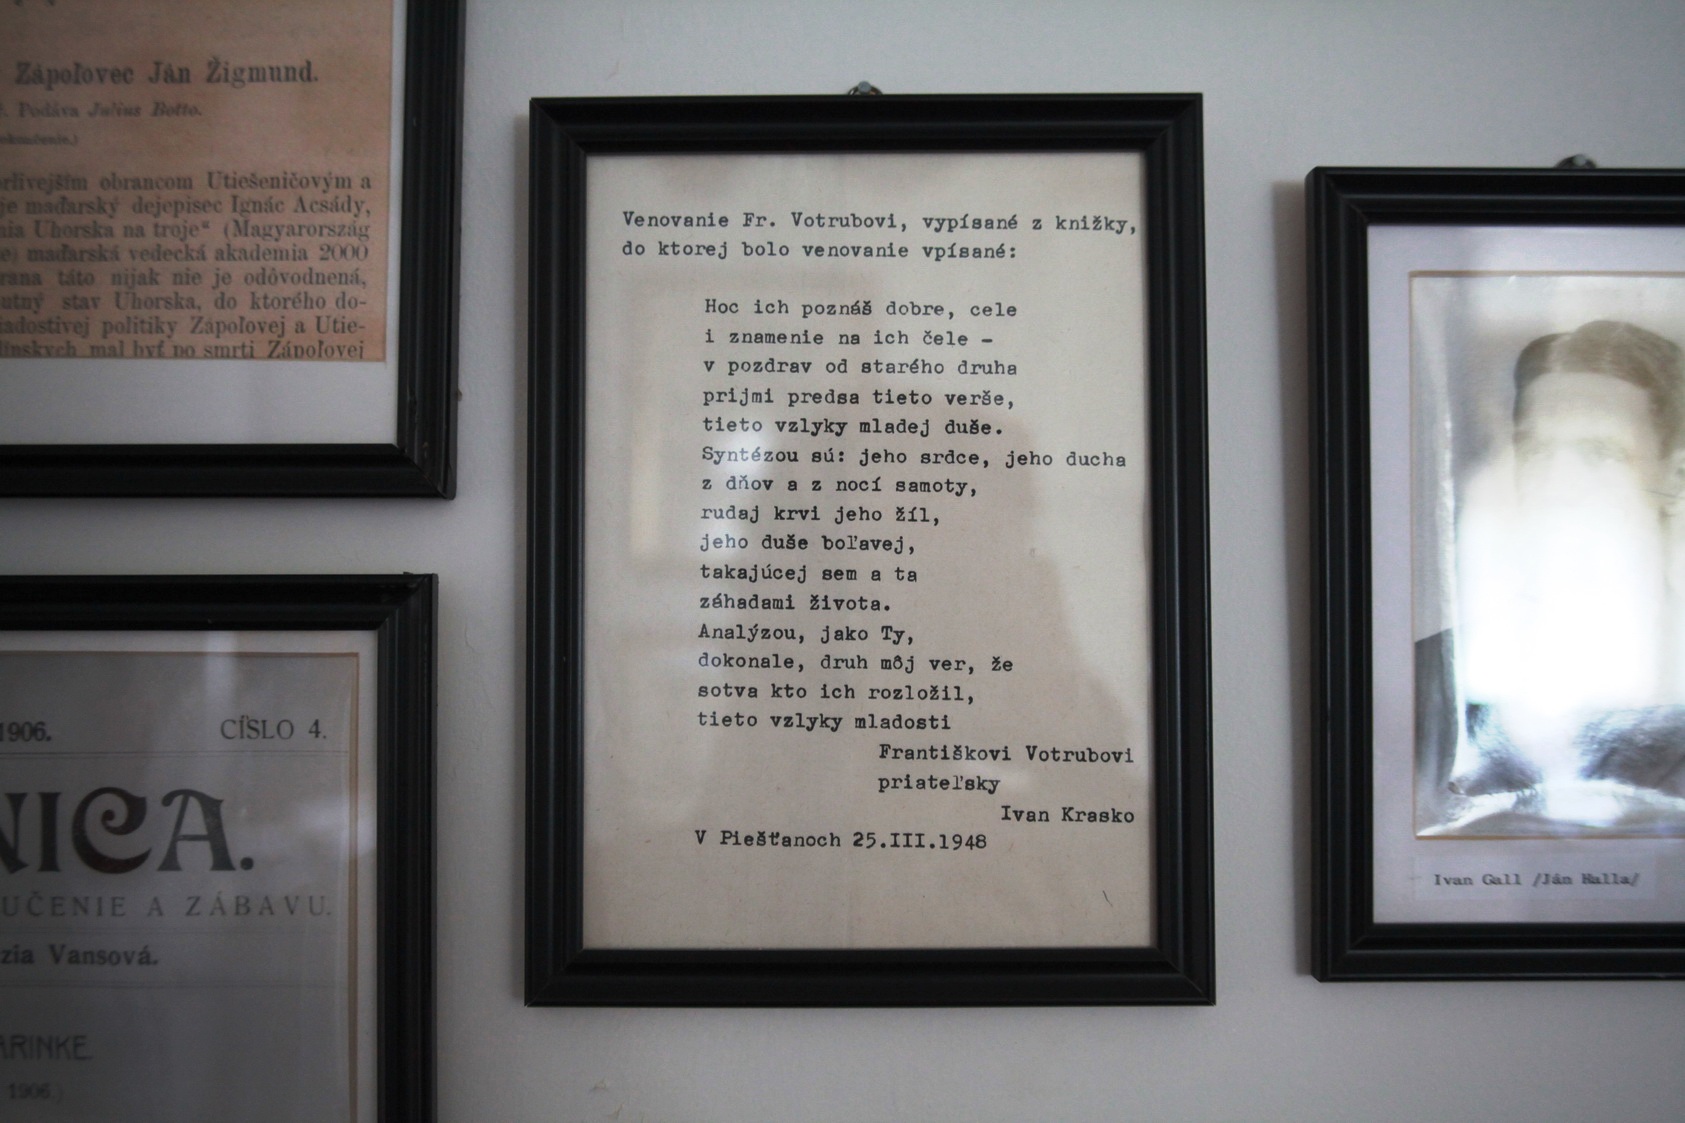 Zápoľovec Ján Žigmund.
Podáva Julius Botto.
obrancom Utiešeničovým a
je maďarský dejepisec Ignác Acsády,
Uhorska na troje“ (Magyarország
maďarská vedecká akademia 2000
táto nijak nie je odôvodnená,
stav Uhorska, do ktorého do-
politiky Zápoľovej a Utie-
mal byť po smrti Zápoľovej
1906. CÍSLO 4.
NICA.
UČENIE A ZÁBAVU.
Vansová.
ARINKE
1906.)
Venovanie Fr. Votrubovi, vypísané z knižky,
do ktorej bolo venovanie vpísané:
Hoc ich poznáš dobre, cele
i znamenie na ich čele -
v pozdrav od starého druha
prijmi predsa tieto verše,
tieto vzlyky mladej duše.
Syntézou sú: jeho srdce, jeho ducha
z dňov a z nocí samoty,
rudaj krvi jeho žíl,
jeho duše boľavej,
takajúcej sem a ta
záhadami života.
Analýzou, jako Ty,
dokonale, druh môj ver, že
sotva kto ich rozložil,
tieto vzlyky mladosti
Františkovi Votrubovi
priateľsky
Ivan Krasko
V Piešťanoch 25.III.1948
Ivan Gall /Ján Halla/